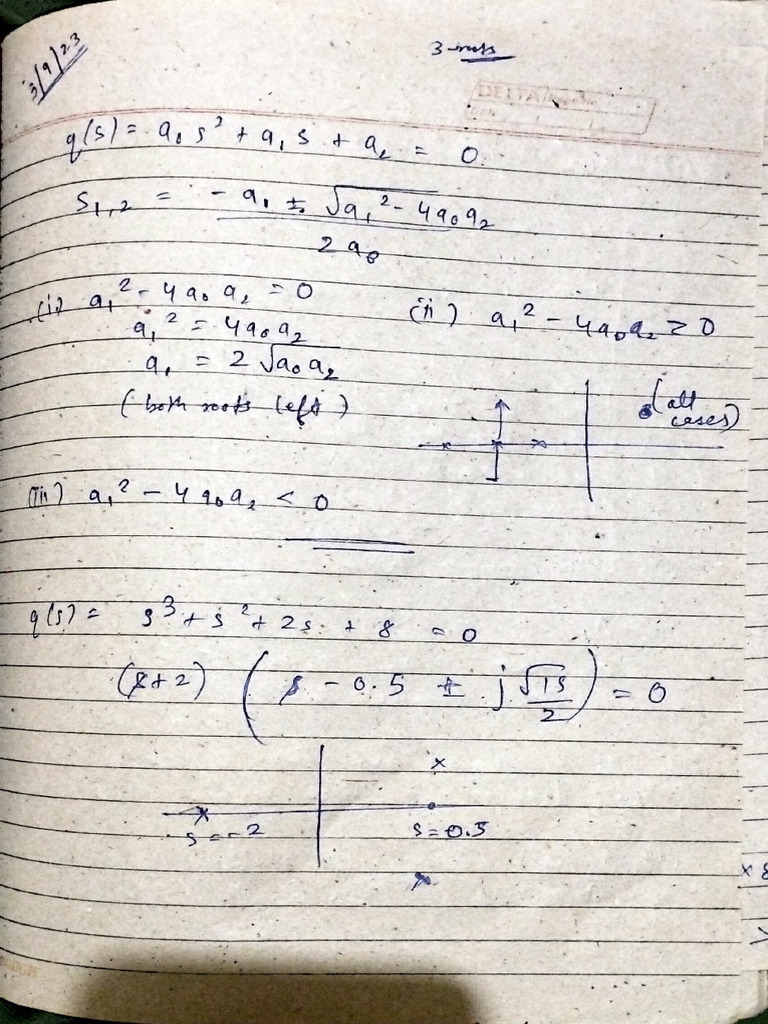 3/9/23
3 roots
DELTA
q(s) = a₀s² + a₁s + a₂ = 0.
s₁,₂ = -a₁ ± √(a₁² - 4a₀a₂) / 2a₀
(i) a₁² - 4a₀a₂ = 0
a₁² = 4a₀a₂
a₁ = 2√(a₀a₂)
(both roots left)
(ii) a₁² - 4a₀a₂ > 0
(all cases)
(iii) a₁² - 4a₀a₂ < 0
q(s) = s³ + s² + 2s + 8 = 0
(s+2) (s - 0.5 ± j √15/2) = 0
s = -2
s = 0.5